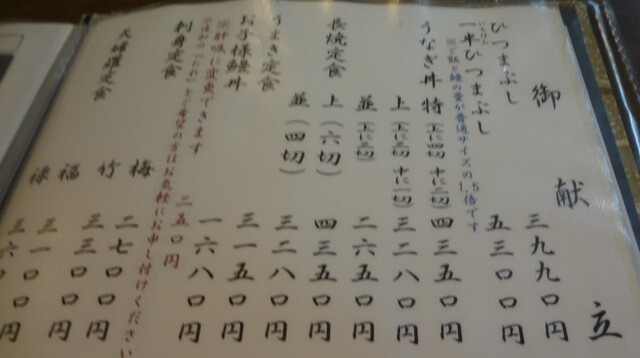 御献立
ひつまぶし 三九九〇円
一半ひつまぶし 五三〇〇円
※ご飯と鰻の量が普通サイズの1.5倍です
うなぎ丼 特(上に四切 中に二切) 四三五〇円
上(上に三切 中に一切) 三二八〇円
並(上に三切) 二六五〇円
長焼定食 上(六切) 四三五〇円
並(四切) 三二八〇円
うまき定食 三一五〇円
お子様鰻丼 一六八〇円
※肝吸に変更できます 二五〇円
をご希望の方はお気軽にお申し付けください
刺身定食 梅 二七〇〇円
竹 三三〇〇円
天婦羅定食 福 三一〇〇円
禄 三六〇〇円